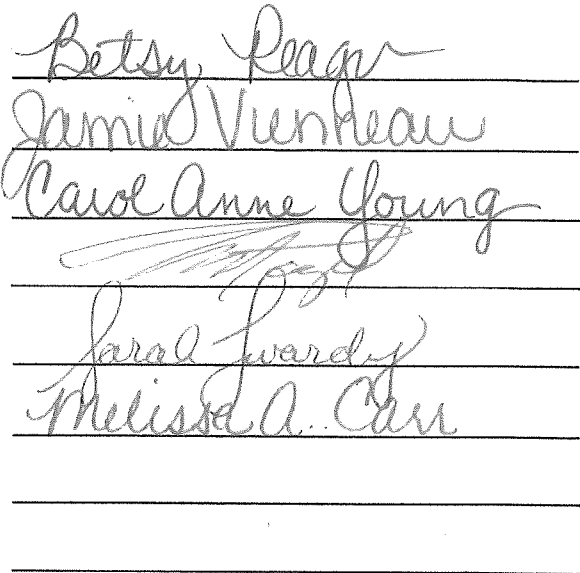 Betsy Reagn
Jamie Vienneau
Carol Anne Young
Sarah Swardy
Melissa A. Carr